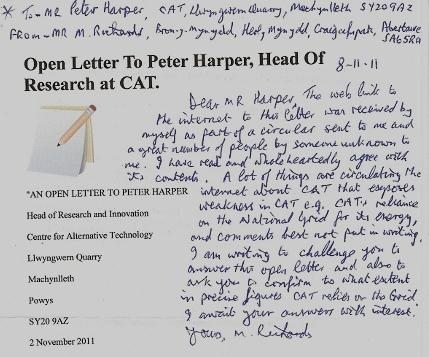 * To - MR Peter Harper, CAT, Llwyngwern Quarry, Machynlleth SY20 9AZ
FROM - MR M. Richards, Bron-y-Mynydd, Heol Mynydd, Abertawe
SA6 5RA
Open Letter To Peter Harper, Head Of
Research at CAT.
8-11-11
Dear MR Harper, The web link to
the internet to this letter was received by
myself as part of a circular sent to me and
a great number of people by someone unknown to
me. I have read and wholeheartedly agree with
its contents. A lot of things are circulating the
internet about CAT that exposes
weakness in CAT e.g. CATs reliance
on the National Grid for its energy,
and comments best not put in writing.
I am writing to challenge you to
answer this open letter and also to
ask you to confirm to what extent
in precise figures CAT relies on the Grid.
I await your answers with interest.
Yours, M. Richards
*AN OPEN LETTER TO PETER HARPER
Head of Research and Innovation
Centre for Alternative Technology
Llwyngwern Quarry
Machynlleth
Powys
SY20 9AZ
2 November 2011